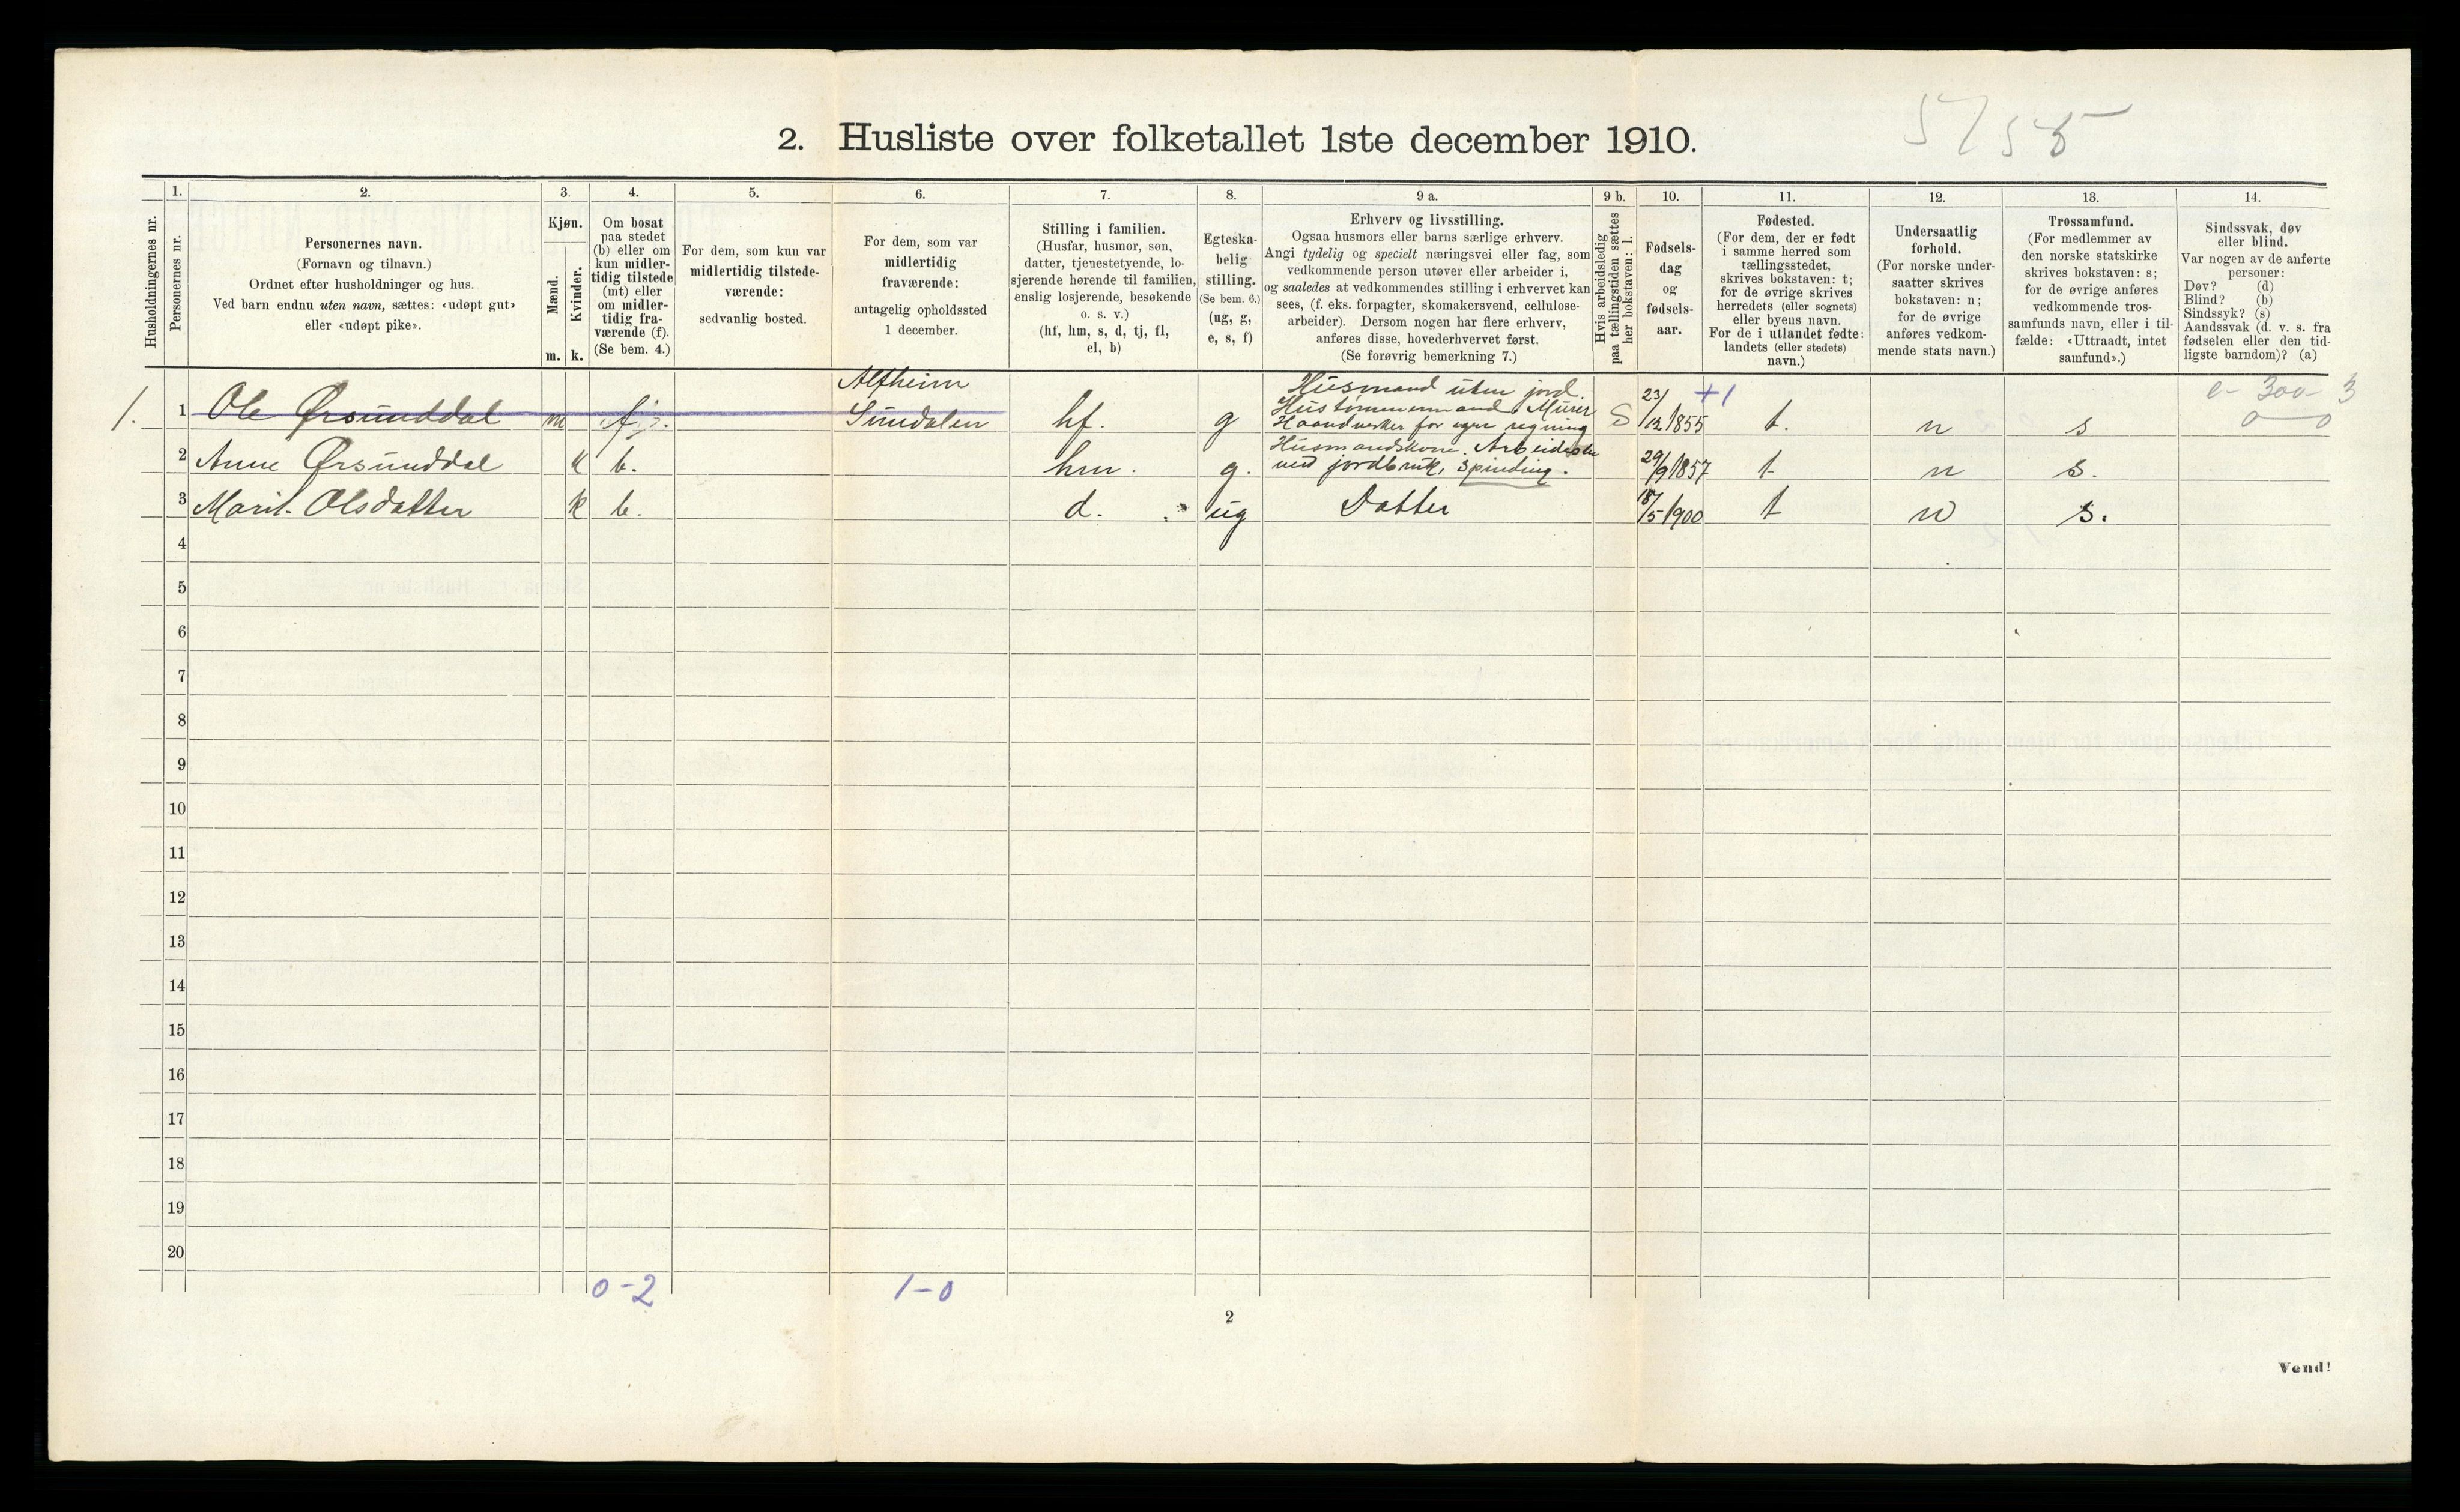 5755
2. Husliste over folketallet 1ste december 1910.
Husholdningernes nr.
1.
Personernes nr.
2.
Personernes navn.
(Fornavn og tilnavn.)
Ordnet efter husholdninger og hus.
Ved barn endnu uten navn, sættes: «udøpt gut»
eller «udøpt pike».
3.
Kjøn.
Mænd.
Kvinder.
m. k.
4.
Om bosat
paa stedet
(b) eller om
kun midler-
tidig tilstede
(mt) eller
om midler-
tidig fra-
værende (f).
(Se bem. 4.)
5.
For dem, som kun var
midlertidig tilstede-
værende:
sedvanlig bosted.
6.
For dem, som var
midlertidig
fraværende:
antagelig opholdssted
1 december.
7.
Stilling i familien.
(Husfar, husmor, søn,
datter, tjenestetyende, lo-
sjerende hørende til familien,
enslig losjerende, besøkende
o. s. v.)
(hf, hm, s, d, tj, fl,
el, b)
8.
Egteska-
belig
stilling.
(Se bem. 6.)
(ug, g,
e, s, f)
9 a.
Erhverv og livsstilling.
Ogsaa husmors eller barns særlige erhverv.
Angi tydelig og specielt næringsvei eller fag, som
vedkommende person utøver eller arbeider i,
og saaledes at vedkommendes stilling i erhvervet kan
sees, (f. eks. forpagter, skomakersvend, cellulose-
arbeider). Dersom nogen har flere erhverv,
anføres disse, hovederhvervet først.
(Se forøvrig bemerkning 7.)
9 b.
Hvis arbeidsledig
paa tællingstiden sættes
her bokstaven: l.
10.
Fødsels-
dag
og
fødsels-
aar.
11.
Fødested.
(For dem, der er født
i samme herred som
tællingsstedet,
skrives bokstaven: t;
for de øvrige skrives
herredets (eller sognets)
eller byens navn.
For de i utlandet fødte:
landets (eller stedets)
navn.)
12.
Undersaatlig
forhold.
(For norske under-
saatter skrives
bokstaven: n;
for de øvrige
anføres vedkom-
mende stats navn.)
13.
Trossamfund.
(For medlemmer av
den norske statskirke
skrives bokstaven: s;
for de øvrige anføres
vedkommende tros-
samfunds navn, eller i til-
fælde: «Uttraadt, intet
samfund».)
14.
Sindssvak, døv
eller blind.
Var nogen av de anførte
personer:
Døv? (d)
Blind? (b)
Sindssyk? (s)
Aandssvak (d. v. s. fra
fødselen eller den tid-
ligste barndom)? (a)
Alfheim
Husmand uten jord.
+1
e- 300- 3
0 — 0
1. 1 Ole Ørsunddal m f. Sundalen hf. g Hustømmermand & Murer S 23/12 1855 t. n s
Haandverker for egen regning
Husmandskone. Arbeidsløn
2 Anne Ørsunddal k b. hm. g. ved jordbruk, Spinding. 29/9 1857 t n s.
3 Marit Olsdatter k b. d. ug Datter 18/5 1900 t n s.
4
5
6
7
8
9
10
11
12
13
14
15
16
17
18
19
20
0-2 1-0
2
Vend!